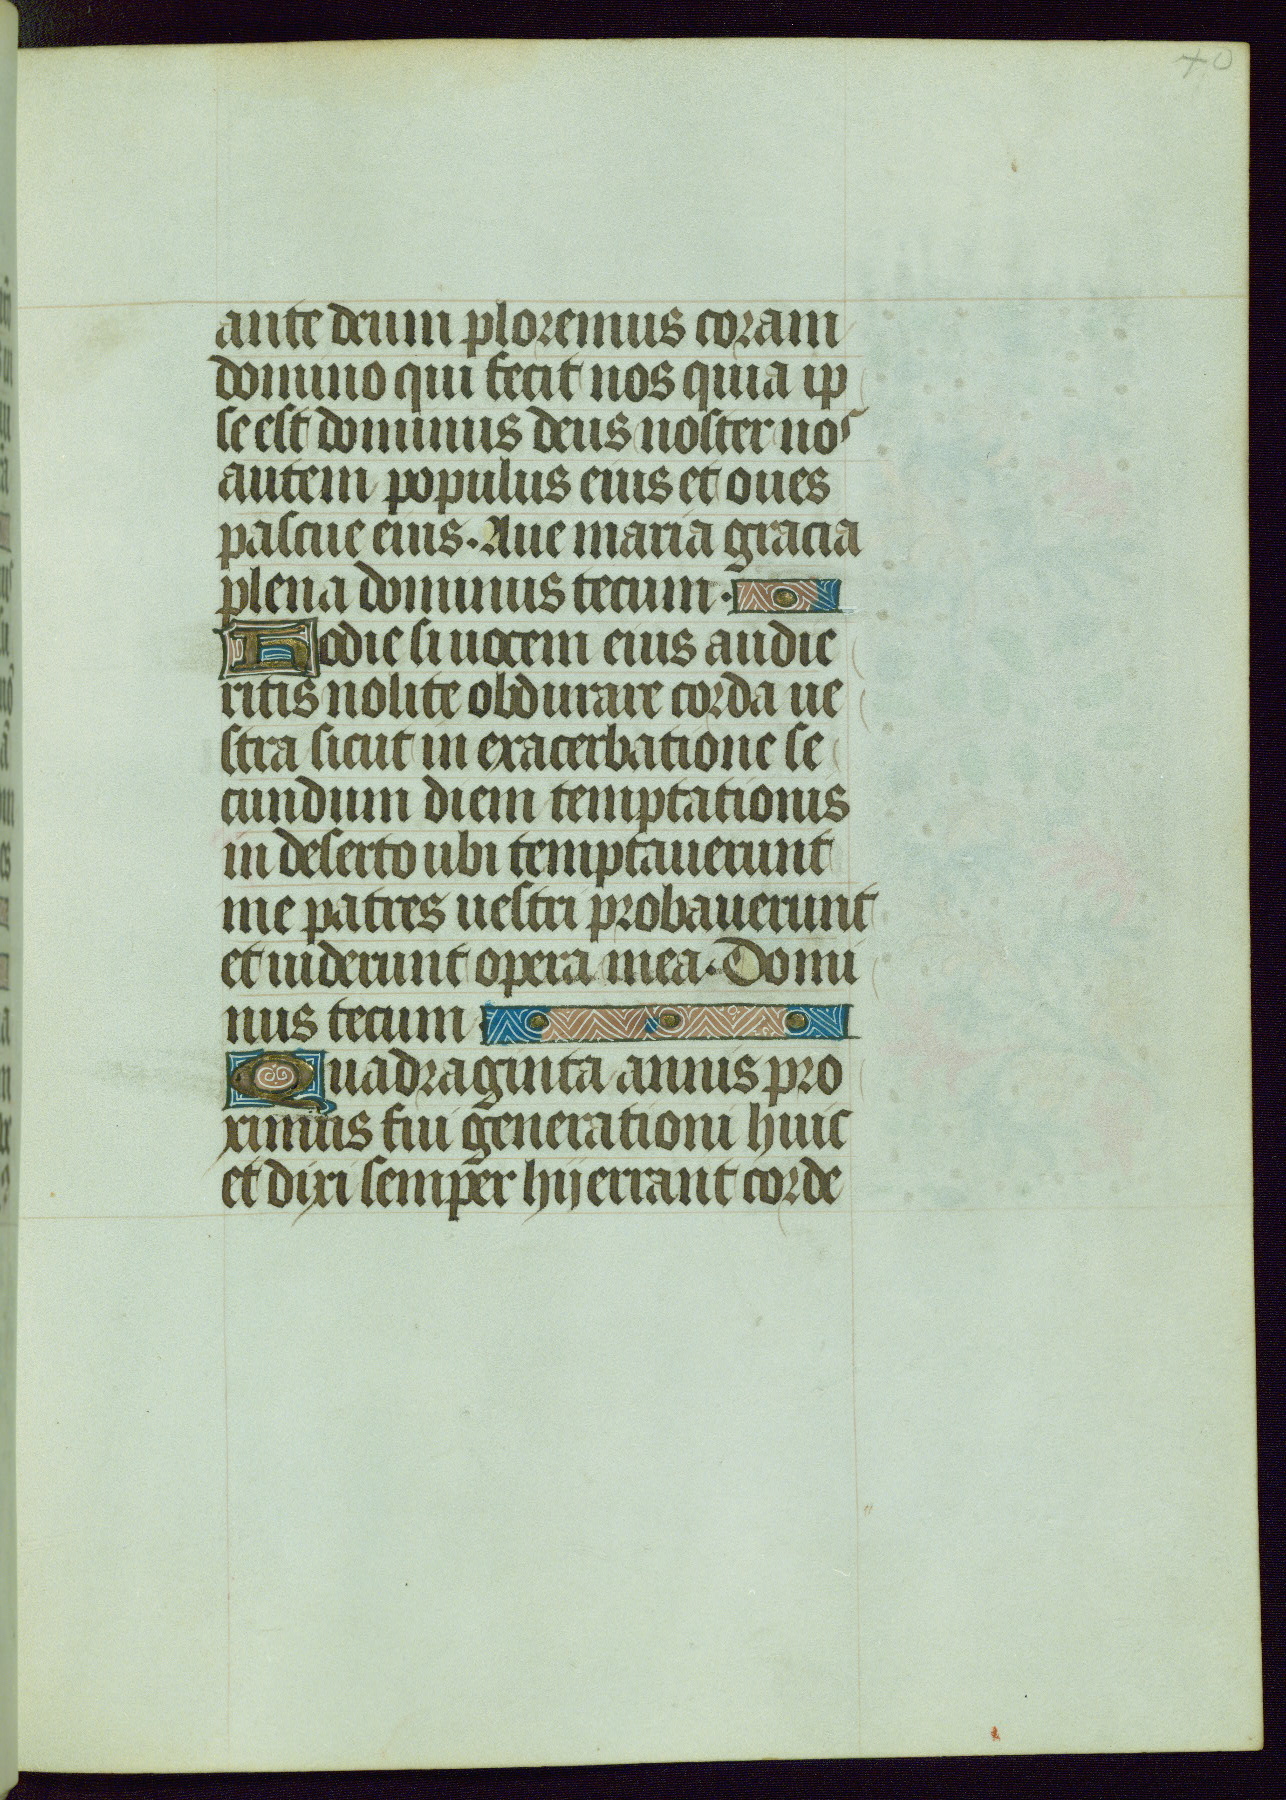 40
ante deum ploremus coram
domino qui fecit nos quia ip
se est dominus deus noster nos
autem populus eius et oues
pascue eius. Aue maria gracia
plena dominus tecum.
Hodie si uocem eius audie
ritis nolite obdurare corda ue
stra sicut in exacerbatione se
cundum diem temptationis
in deserto ubi temptauerunt
me patres uestri probauerunt
et uiderunt opera mea. Domi
nus tecum
Quadraginta annis pro
ximus fui generationi huic
et dixi semper hij errant corde